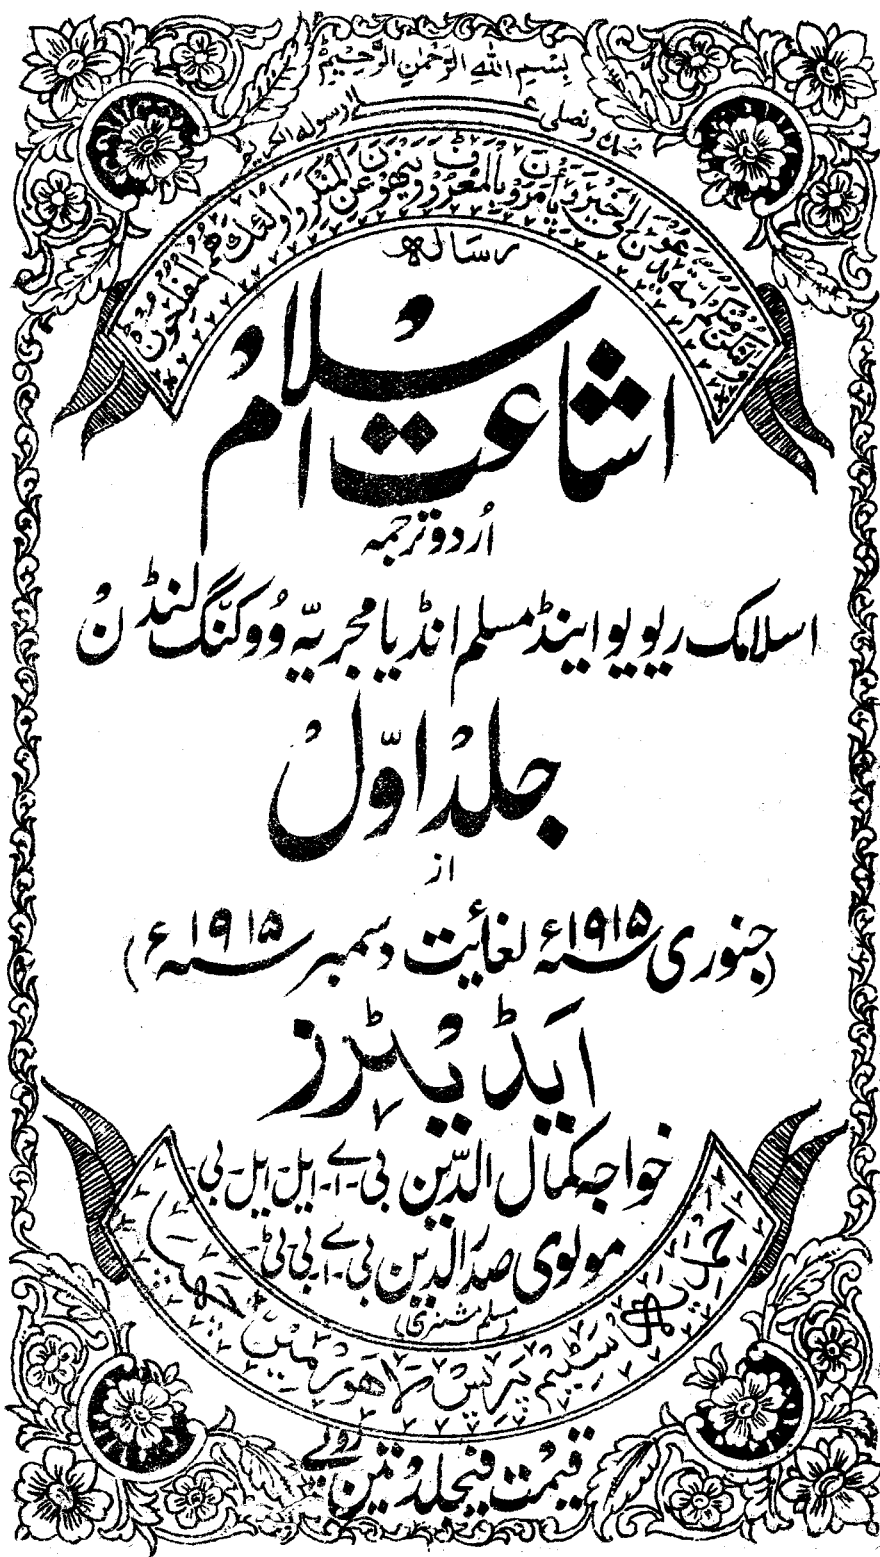 بسم الله الرحمن الرحیم
نحمدہ ونصلی علٰی رسولہ الکریم
ولتکن منکم امة یدعون الی الخیر ویأمرون بالمعروف وینهون عن المنکر واولئک هم المفلحون
رسالہ
اشاعت اسلام
اُردو ترجمہ
اسلامک ریویو اینڈ مسلم انڈیا مجریہ ووکنگ لنڈن
جلد اوّل
از
(جنوری سنہ ۱۹۱۵ء لغائیت دسمبر سنہ ۱۹۱۵ء)
ایڈیٹرز
خواجہ کمال الدّین بی-اے-ایل-ایل-بی
مولوی صدرالدین بی-اے بی-ٹی
(مسلم مشنری)
سٹیم پریس لاہور میں
قیمت فیجلد تین روپے